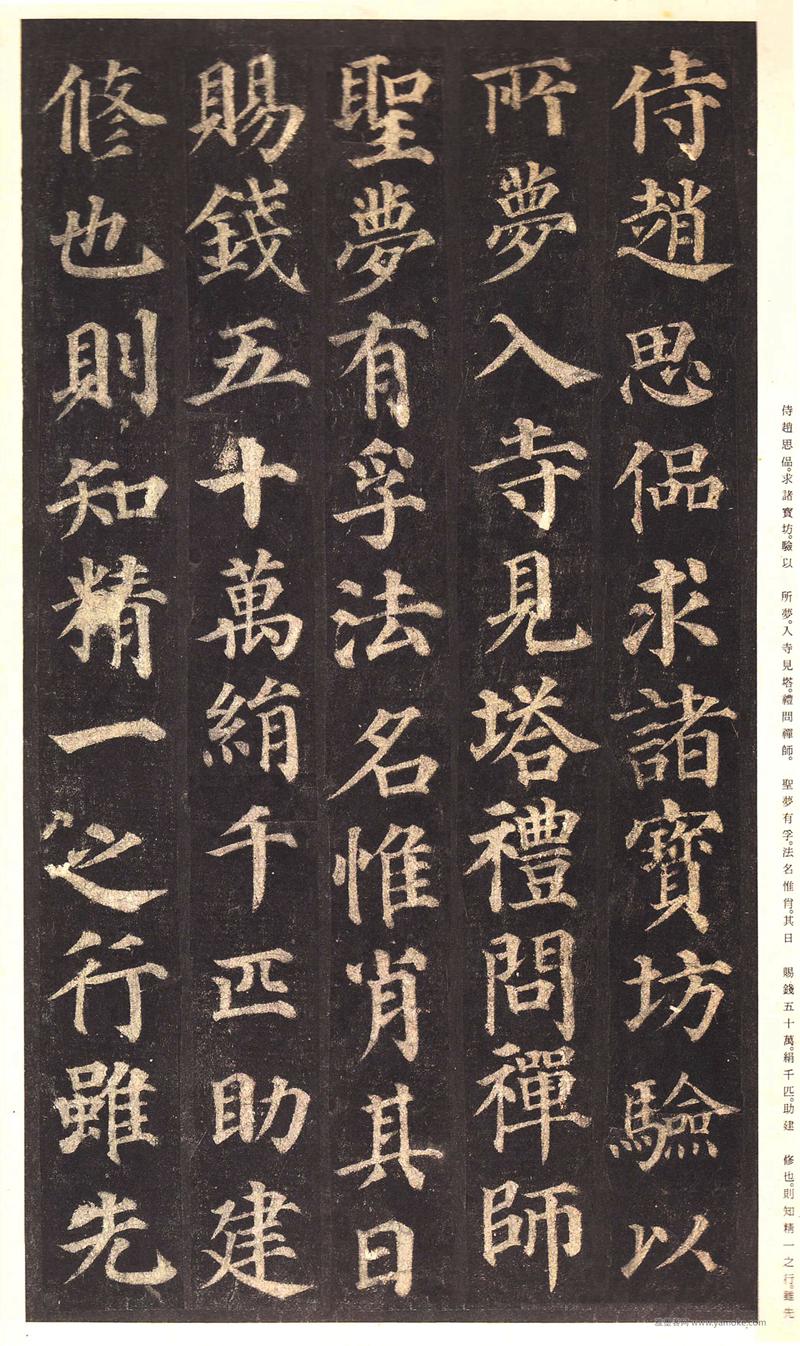 侍趙思偘求諸寶坊驗以
所夢入寺見塔禮問禪師
聖夢有孚法名惟肖其日
賜錢五十萬絹千匹助建
修也則知精一之行雖先
侍趙思偘。求諸寶坊。驗以 所夢。入寺見塔。禮問禪師。 聖夢有孚。法名惟肖。其日 賜錢五十萬。絹千匹。助建 修也。則知精一之行。雖先
www.yamoke.com